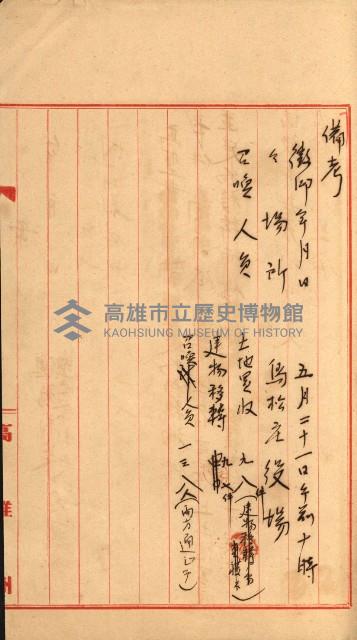 備考
徵印年月日　五月二十一日午前十時
仝場所　鳥松庄役場
召喚人員
土地買收　九八件
建物移轉　九七件
召喚人員　一三八人（両方通シテ）
高雄州
高雄市立歷史博物館
KAOHSIUNG MUSEUM OF HISTORY